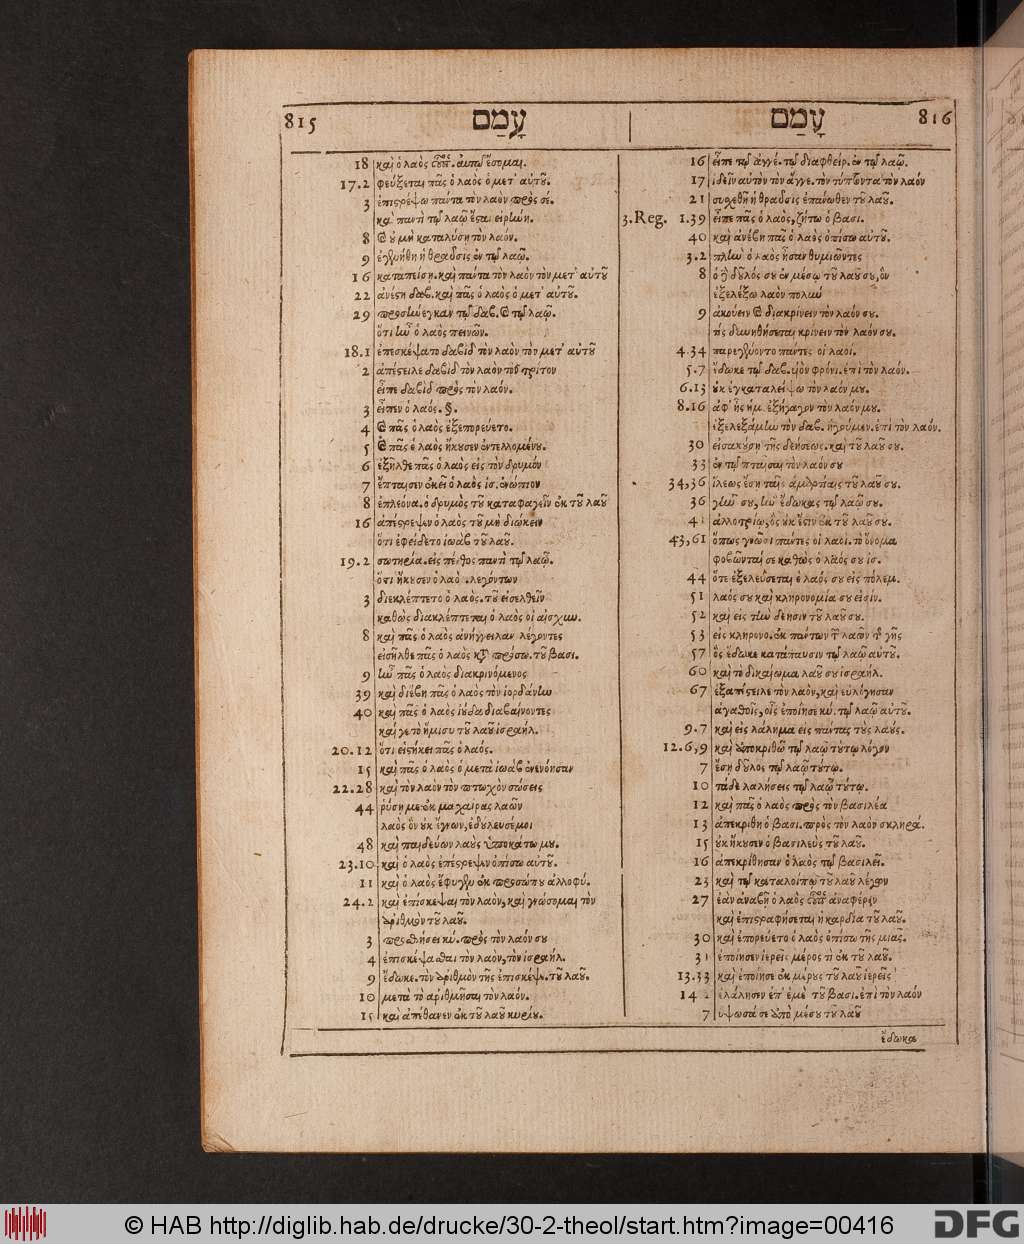 815 עָמַם עָמַם 816
18 καὶ ὁ λαὸς ἔσομαι.
17.2 φεύξεται πᾶς ὁ λαὸς ὁ μετ' αὐτοῦ.
3 ἐπιστρέψω πάντα τὸν λαὸν πρὸς σέ.
καὶ παντὶ τῷ λαῷ ἔσται εἰρήνη.
8 καὶ οὐ μὴ καταλύσῃ τὸν λαόν.
9 ἐγενήθη ἡ θραῦσις ἐν τῷ λαῷ.
16 καταπείσῃ. καὶ πάντα τὸν λαὸν τὸν μετ' αὐτοῦ
22 ἀνέστη δαβ. καὶ πᾶς ὁ λαὸς ὁ μετ' αὐτοῦ.
29 προσήνεγκαν τῷ δαβ. καὶ τῷ λαῷ.
ὅτι ὁ λαὸς πεινῶν.
18.1 ἐπεσκέψατο δαβὶδ τὸν λαὸν τὸν μετ' αὐτοῦ
2 ἀπέστειλε δαβὶδ τὸν λαὸν τὸ τρίτον
εἶπε δαβὶδ πρὸς τὸν λαόν.
3 εἶπεν ὁ λαός. §.
4 καὶ πᾶς ὁ λαὸς ἐξεπορεύετο.
5 καὶ πᾶς ὁ λαὸς ἤκουσεν ἐντελλομένου.
6 ἐξῆλθε πᾶς ὁ λαὸς εἰς τὸν δρυμόν
7 ἔπταισεν ἐκεῖ ὁ λαὸς ἰσ. ἐνώπιον
8 ἐπλεόνα. ὁ δρυμὸς τοῦ καταφαγεῖν ἐκ τοῦ λαοῦ
16 ἀπέστρεψεν ὁ λαὸς τοῦ μὴ διώκειν
ὅτι ἐφείδετο ἰωὰβ τοῦ λαοῦ.
19.2 σωτηρία. εἰς πένθος παντὶ τῷ λαῷ.
ὅτι ἤκουσεν ὁ λαὸς λεγόντων
3 διεκλέπτετο ὁ λαὸς. τοῦ εἰσελθεῖν
καθὼς διακλέπτεται ὁ λαὸς οἱ αἰσχυν.
8 καὶ πᾶς ὁ λαὸς ἀνήγγειλαν λέγοντες
εἰσῆλθε πᾶς ὁ λαὸς κτ πρόσω. τοῦ βασι.
9 ἦν πᾶς ὁ λαὸς διακρινόμενος
39 καὶ διέβη πᾶς ὁ λαὸς τὸν ἰορδάνην
40 καὶ πᾶς ὁ λαὸς ἰούδα διαβαίνοντες
καί γε τὸ ἥμισυ τοῦ λαοῦ ἰσραήλ.
20.12 ὅτι εἱστήκει πᾶς ὁ λαός.
15 καὶ πᾶς ὁ λαὸς ὁ μετὰ ἰωὰβ ἐνενόησαν
22.28 καὶ τὸν λαὸν τὸν πτωχὸν σώσεις
44 ῥύσῃ με ἐκ μαχαίρας λαῶν
λαὸς ὃν οὐκ ἔγνων, ἐδούλευσέ μοι
48 καὶ παιδεύων λαοὺς ὑποκάτω μου.
23.10 καὶ ὁ λαὸς ἐπέστρεψεν ὀπίσω αὐτοῦ.
11 καὶ ὁ λαὸς ἔφυγεν ἐκ προσώπου ἀλλοφύ.
24.2 καὶ ἐπίσκεψαι τὸν λαὸν, καὶ γνώσομαι τὸν
ἀριθμὸν τοῦ λαοῦ.
3 προσθήσει κύ. πρὸς τὸν λαόν σου
4 ἐπισκέψασθαι τὸν λαὸν, τὸν ἰσραήλ.
9 ἔδωκε. τὸν ἀριθμὸν τῆς ἐπισκέψε. τοῦ λαοῦ.
10 μετὰ τὸ ἀριθμῆσαι τὸν λαόν.
15 καὶ ἀπέθανεν ἐκ τοῦ λαοῦ κυρίου.
16 εἶπε τῷ ἀγγέ. τῷ διαφθείρ. ἐν τῷ λαῷ.
17 ἰδεῖν αὐτὸν τὸν ἄγγε. τὸν τύπτοντα τὸν λαόν
21 συσχεθῇ ἡ θραῦσις ἐπάνωθεν τοῦ λαοῦ.
3. Reg. 1.39 εἶπε πᾶς ὁ λαὸς, ζήτω ὁ βασι.
40 καὶ ἀνέβη πᾶς ὁ λαὸς ὀπίσω αὐτοῦ.
3.2 πλὴν ὁ λαὸς ἦσαν θυμιῶντες
8 ὁ δοῦλός σου ἐν μέσῳ τοῦ λαοῦ σου, ὃν
ἐξελέξω λαὸν πολύν
9 ἀκούειν καὶ διακρίνειν τὸν λαόν σου.
τίς δυνηθήσεται κρίνειν τὸν λαόν σου.
4.34 παρεγένοντο πάντες οἱ λαοί.
5.7 ἔδωκε τῷ δαβ. υἱὸν φρόνι. ἐπὶ τὸν λαόν.
6.13 οὐκ ἐγκαταλείψω τὸν λαόν μου.
8.16 ἀφ' ἧς ἡμ. ἐξήγαγον τὸν λαόν μου.
ἐξελεξάμην τὸν δαβ. ἡγούμεν. ἐπὶ τὸν λαόν.
30 εἰσακούσῃ τῆς δεήσεως. καὶ τοῦ λαοῦ σου.
33 ἐν τῷ πταῖσαι τὸν λαόν σου
34,36 ἵλεως ἔσῃ ταῖς ἁμαρτίαις τοῦ λαοῦ σου.
36 γῆν σου, ἣν ἔδωκας τῷ λαῷ σου.
41 ἀλλοτρίῳ, ὃς οὐκ ἔστιν ἐκ τοῦ λαοῦ σου.
43,61 ὅπως γνῶσι πάντες οἱ λαοὶ. τὸ ὄνομα
φοβῶνταί σε καθὼς ὁ λαός σου ἰσ.
44 ὅτε ἐξελεύσεται ὁ λαός σου εἰς πόλεμ.
51 λαός σου καὶ κληρονομία σου εἰσίν.
52 καὶ εἰς τὴν δέησιν τοῦ λαοῦ σου.
53 εἰς κληρονο. ἐκ πάντων τῶν λαῶν τῆς γῆς
57 ὃς ἔδωκε κατάπαυσιν τῷ λαῷ αὐτοῦ.
60 καὶ τὸ δικαίωμα λαοῦ σου ἰσραήλ.
67 ἐξαπέστειλε τὸν λαὸν, καὶ εὐλόγησαν
ἀγαθοῖς, οἷς ἐποίησε κύ. τῷ λαῷ αὐτοῦ.
9.7 καὶ εἰς λάλημα εἰς πάντας τοὺς λαούς.
12.6,9 καὶ ἀποκριθῶ τῷ λαῷ τούτῳ λόγον
7 ἔσῃ δοῦλος τῷ λαῷ τούτῳ.
10 τάδε λαλήσεις τῷ λαῷ τούτῳ.
12 καὶ πᾶς ὁ λαὸς πρὸς τὸν βασιλέα
13 ἀπεκρίθη ὁ βασι. πρὸς τὸν λαὸν σκληρά.
15 οὐκ ἤκουσεν ὁ βασιλεὺς τοῦ λαοῦ.
16 ἀπεκρίθησαν ὁ λαὸς τῷ βασιλεῖ.
23 καὶ τῷ καταλοίπῳ τοῦ λαοῦ λέγων
27 ἐὰν ἀναβῇ ὁ λαὸς ἀναφέρειν
καὶ ἐπιστραφήσεται ἡ καρδία τοῦ λαοῦ.
30 καὶ ἐπορεύετο ὁ λαὸς ὀπίσω τῆς μιᾶς.
31 ἐποίησεν ἱερεῖς μέρος τι ἐκ τοῦ λαοῦ.
13.33 καὶ ἐποίησε ἐκ μέρους τοῦ λαοῦ ἱερεῖς
14.2 ἐλάλησεν ἐπ' ἐμὲ τοῦ βασι. ἐπὶ τὸν λαόν
7 ὕψωσά σε ἀπὸ μέσου τοῦ λαοῦ
ἔδωκα
© HAB http://diglib.hab.de/drucke/30-2-theol/start.htm?image=00416 DFG